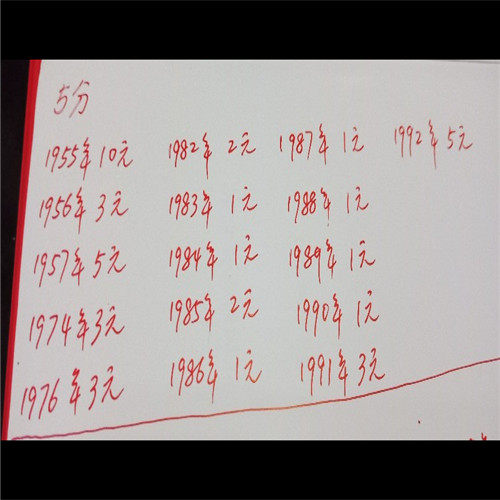 5分
1955年10元 1982年 2元 1987年 1元 1992年 5元
1956年 3元 1983年 1元 1988年 1元
1957年 5元 1984年 1元 1989年 1元
1974年 3元 1985年 2元 1990年 1元
1976年 3元 1986年 1元 1991年 3元